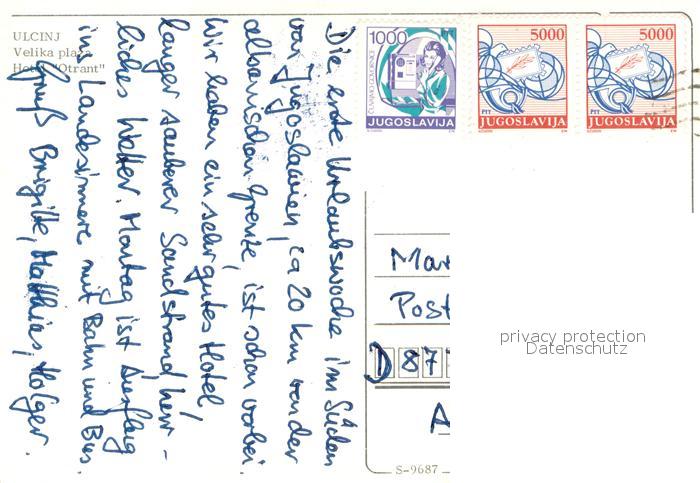 ULCINJ
Velika plaža
Hotel "Otrant"
Die erste Urlaubswoche im Süden
von Jugoslawien, ca 20 km von der
albanischen Grenze, ist schon vorbei.
Wir haben ein sehr gutes Hotel,
langer sauberer Sandstrand, herr-
liches Wetter. Montag ist Ausflug
ins Landesinnere mit Bahn und Bus
Gruß Brigitte, Matthias, Holger.
1000
PTT
ČUVAJMO GOVORNICE
JUGOSLAVIJA
5000
PTT
JUGOSLAVIJA
5000
PTT
JUGOSLAVIJA
Mar
Post
D 87
A
privacy protection
Datenschutz
S-9687